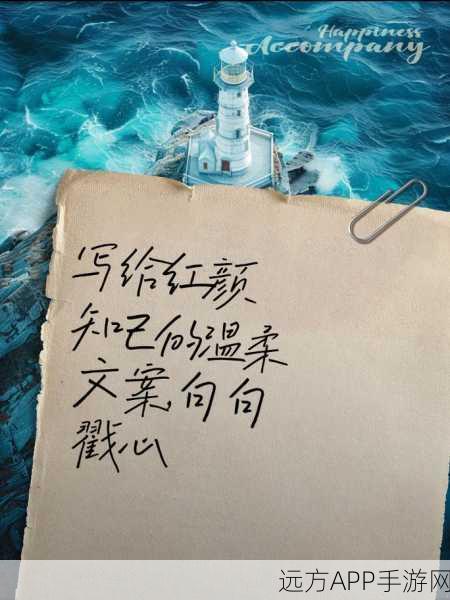 Happiness
Accompany
写给红颜
知己的温柔
文案,句句
戳心
远方APP手游网